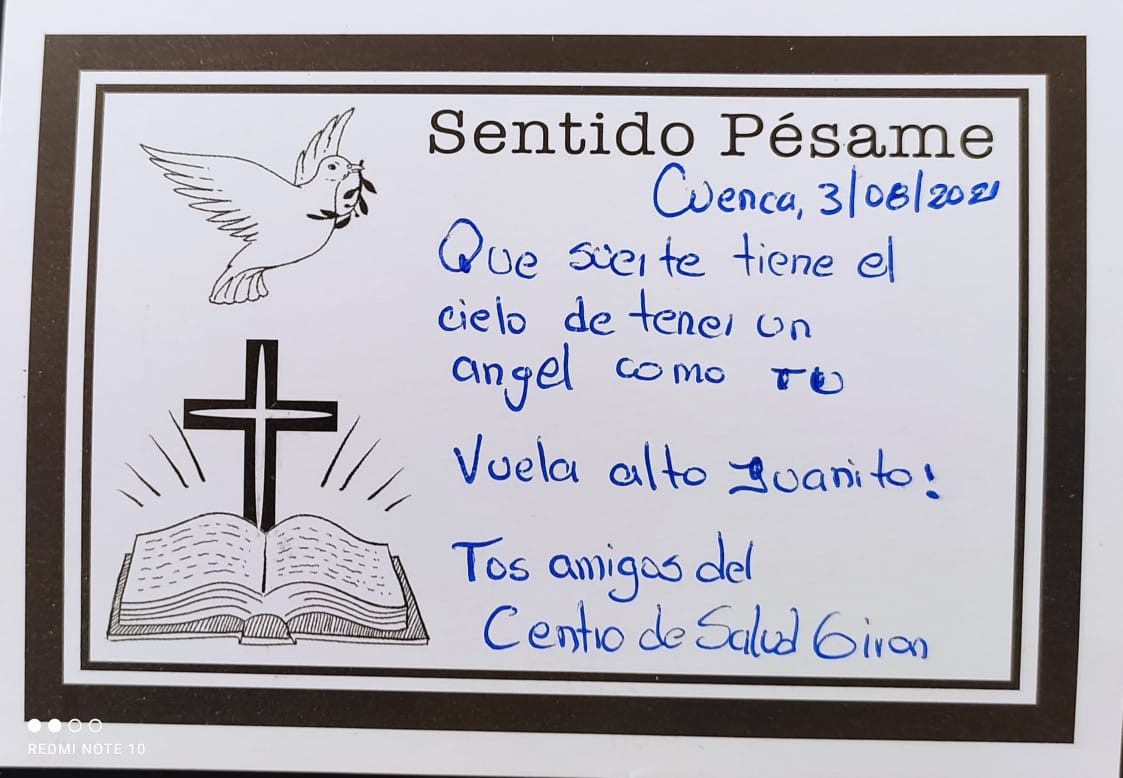 Sentido Pésame
Cuenca, 3/08/2021
Que suerte tiene el
cielo de tener un
angel como TU
Vuela alto Juanito!
Tus amigos del
Centro de Salud Giron
REDMI NOTE 10